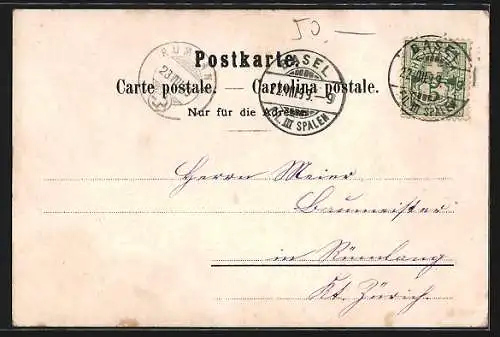 50.—
Postkarte.
Carte postale. — Cartolina postale.
Nur für die Adresse.
BASEL
22.VIII.99. 9
III SPALEN
BASEL
22.VIII.99
III SPALEN
23.VIII
Herrn Meier
Baumeister
in Rümlang
Kt. Zürich.